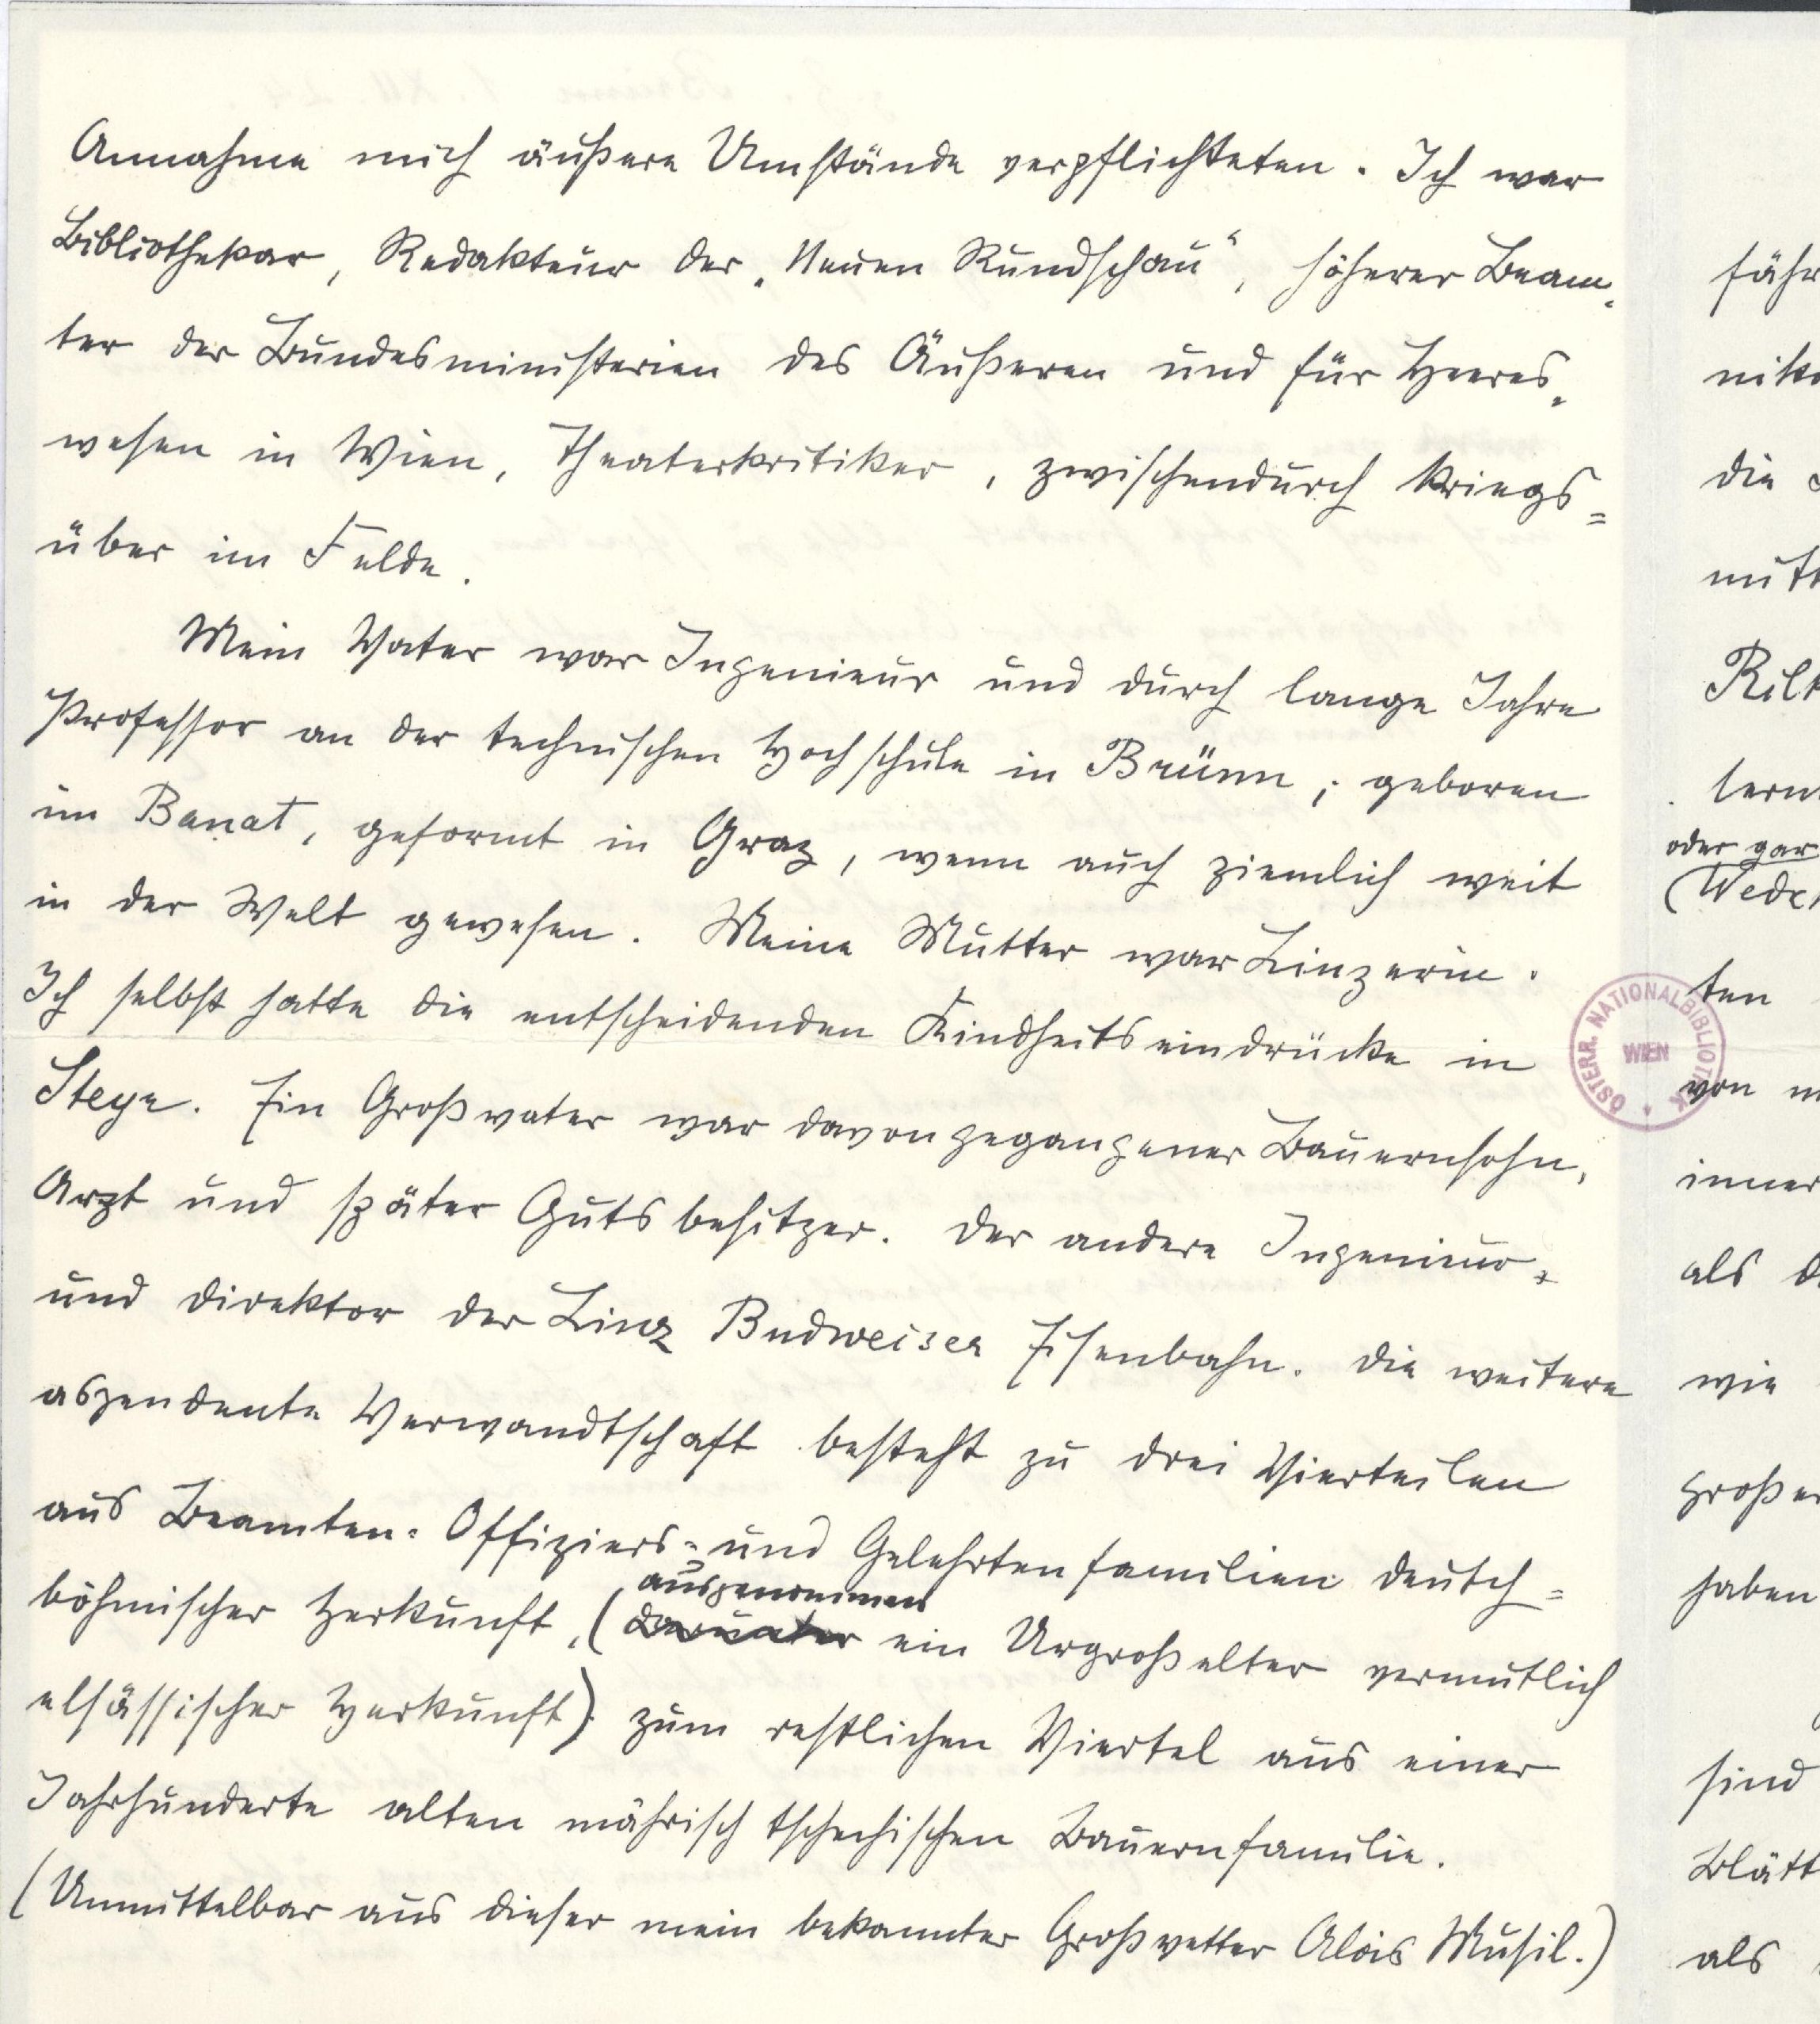 Annahme mich äußere Umstände verpflichteten. Ich war
Bibliothekar, Redakteur der „Neuen Rundschau“, höherer Beam-
ter der Bundesministerien des Äußeren und für Heeres-
wesen in Wien, Theaterkritiker, zwischendurch kriegs=
über im Felde.
Mein Vater war Ingenieur und durch lange Jahre
Professor an der technischen Hochschule in Brünn; geboren
im Banat, geformt in Graz, wenn auch ziemlich weit
in der Welt gewesen. Meine Mutter war Linzerin.
Ich selbst hatte die entscheidenden Kindheitseindrücke in
Steyr. Ein Großvater war davongegangener Bauernsohn,
Arzt und später Gutsbesitzer. Der andere Ingenieur,
und Direktor der Linz Budweiser Eisenbahn. Die weitere
aszendente Verwandtschaft besteht zu drei Vierteilen
aus Beamten- Offiziers- und Gelehrtenfamilien deutsch=
ausgenommen
böhmischer Herkunft, (darunter ein Urgroßelter vermutlich
elsässischer Herkunft) zum restlichen Viertel aus einer
Jahrhunderte alten mährisch tschechischen Bauernfamilie.
(Unmittelbar aus dieser mein bekannter Großvetter Alois Musil.)
ÖSTERR. NATIONALBIBLIOTHEK
WIEN
fähr
die
Rilk
oder gar
(Wede
ten
von m
inner
als d
wie
große
haben
sind
Blätt
als